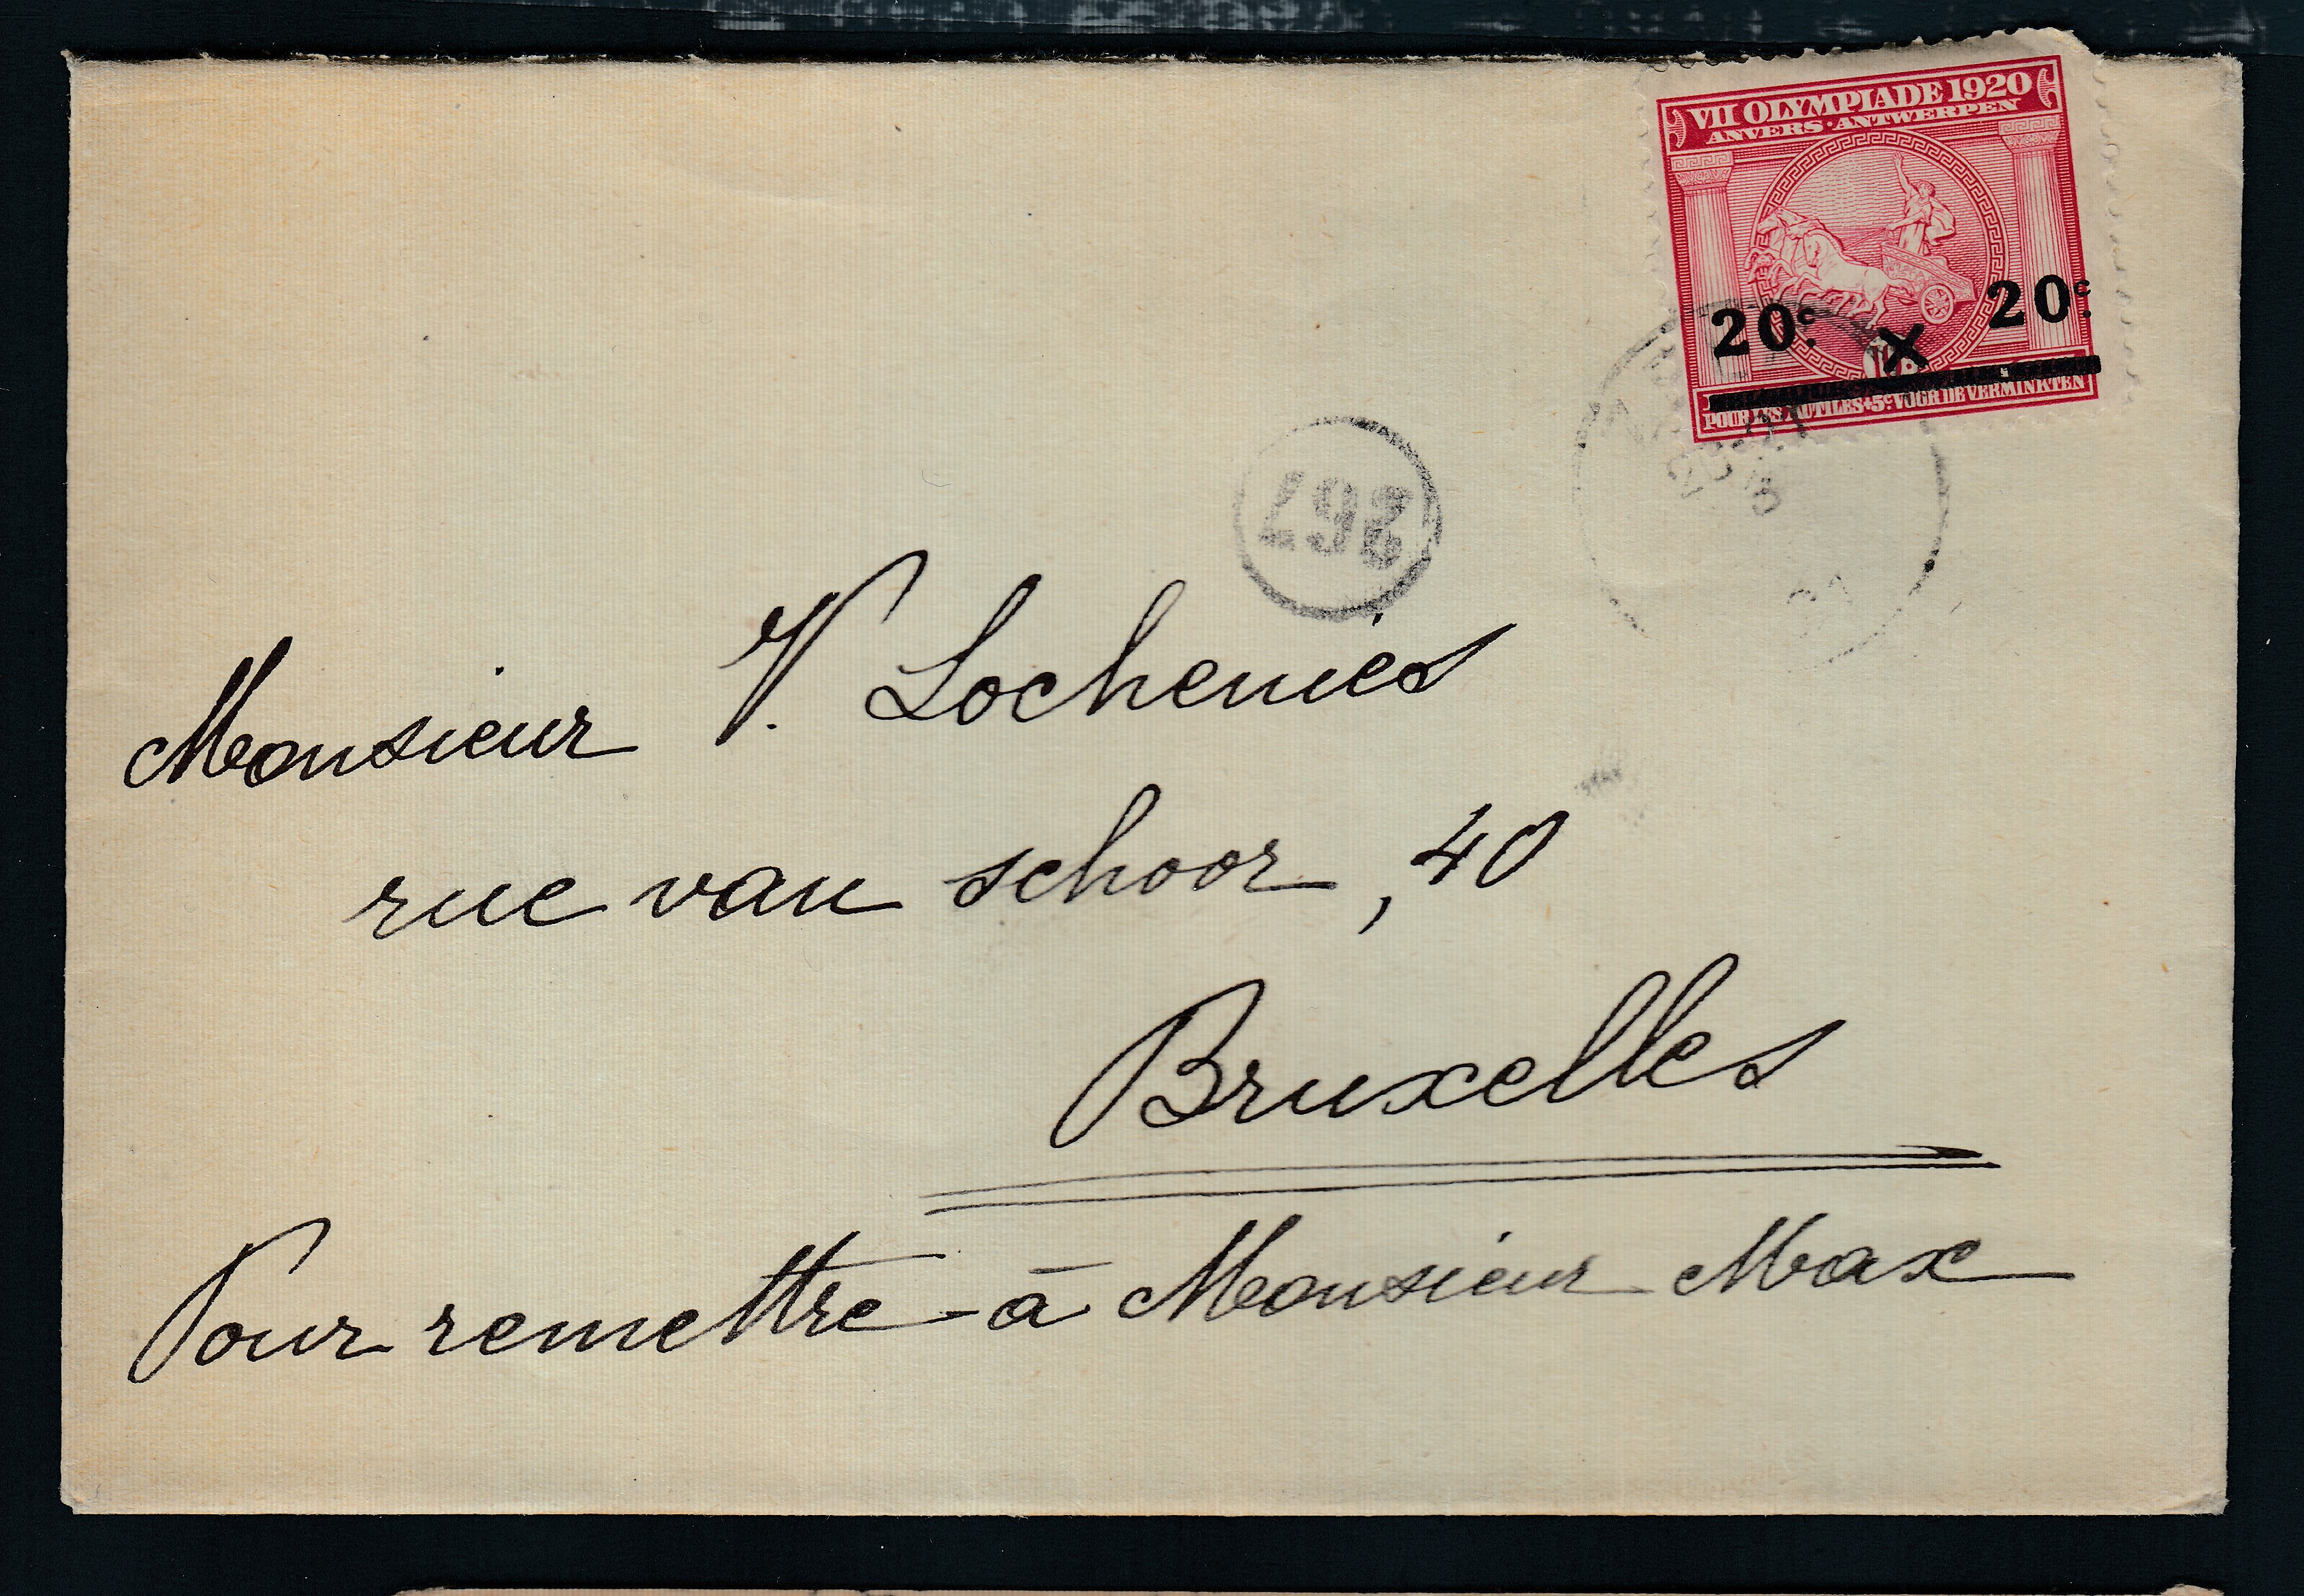 VII OLYMPIADE 1920
ANVERS · ANTWERPEN
20c. 20c.
POUR LES MUTILES+5c VOOR DE VERMINKTEN
267
Monsieur V. Lochenies
rue van schoor, 40
Bruxelles
Pour remettre à Monsieur Max